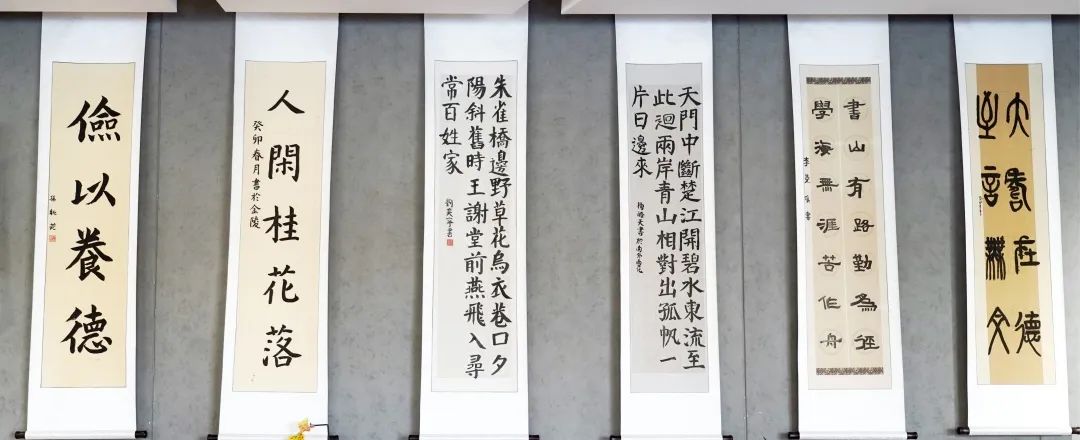 儉以養德
人閑桂花落
癸卯春月書於金陵
朱雀橋邊野草花烏衣巷口夕
陽斜舊時王謝堂前燕飛入尋
常百姓家
天門中斷楚江開碧水東流至
此迴兩岸青山相對出孤帆一
片日邊來
書山有路勤為徑
學海無涯苦作舟
大 在德
至言無文